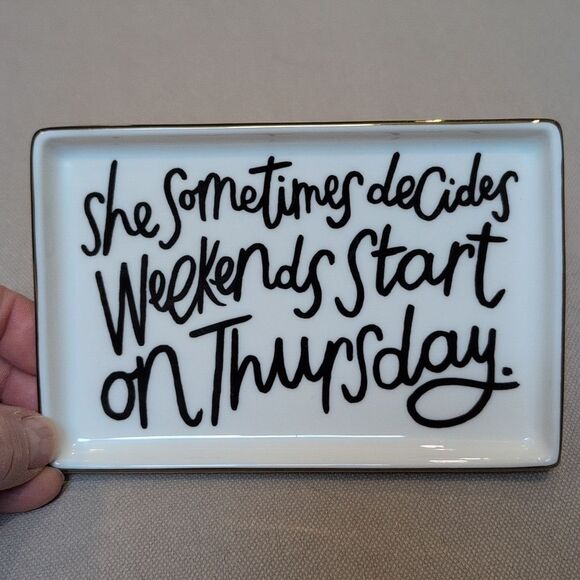 She sometimes decides
Weekends start
on Thursday.